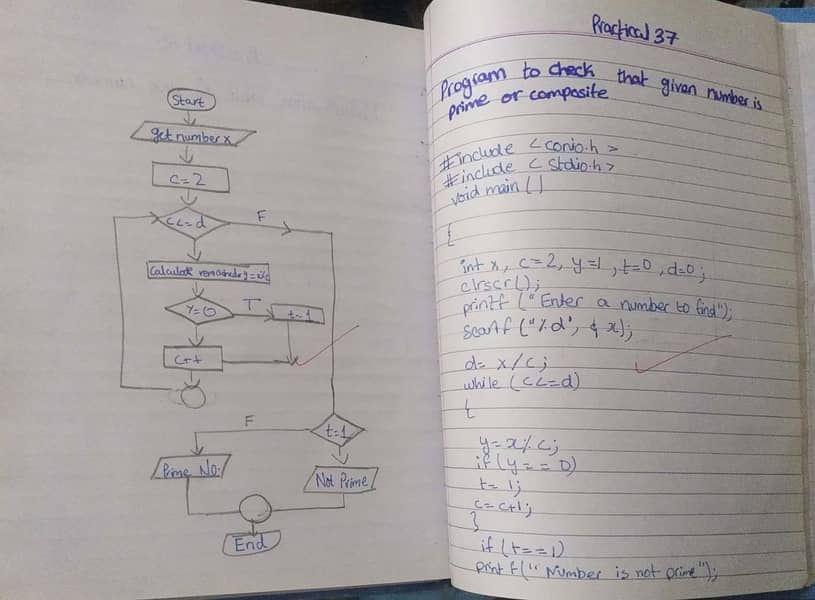 Start
get number x
c=2
c<=d
F
Calculate remainder y=x%c
y=0
T
t=1
c++
t=1
F
Prime No.
Not Prime
End
Practical 37
Program to check that given number is
prime or composite
#include <conio.h>
#include <stdio.h>
void main()
{
int x, c=2, y=1, t=0, d=0;
clrscr();
printf ("Enter a number to find");
scanf ("%d", & x);
d= x/c;
while (c<=d)
{
y=x%c;
if (y==0)
t=1;
c=c+1;
}
if (t==1)
print f("Number is not prime");